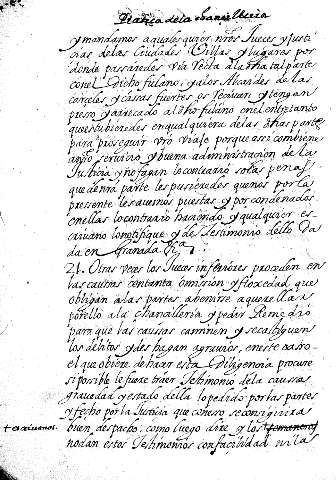 Pratica de la chancilleria
y mandamos a qualesquier nros Jueces y justi
cias de las Ciudades Villas y lugares por
donde passaredes via recta a la dha tal parte
con el Dicho fulano, y a los Alcaides de las
carceles y casas fuertes os recivan y tengan
preso y a recado al dho fulano en el entretanto
que estubieredes en qualquiera de las dhas partes
para proseguir vro viaje porque assi combiene
a nro servicio y buena administracion de la
Justicia y no hagan lo contrario so las penas
que de nra parte les pusieredes que nos por la
presente les avemos puestas y por condenados
en ellas lo contrario haciendo, y qualquier es
crivano lo notifique y de Testimonio dello Da
da en Granada &a
21. Otras veces los Jueces inferiores proceden en
las causas con tanta omission y floxedad que
obligan a las partes a benirse a querellar
por ello a la chancilleria y pedir Remedio
para que las caussas caminen y se castiguen
los delitos y deshagan agravios, en este caso
el que obiere de hacer esta diligencia procure
si posible le fuere traer Testimonio de la caussa
gravedad y estado della lo pedido por las partes
y fecho por la Justicia que con esso se conseguira
buen despacho, como luego dire y los
+ escrivanos
no dan estos Testimonios con facilidad ni las